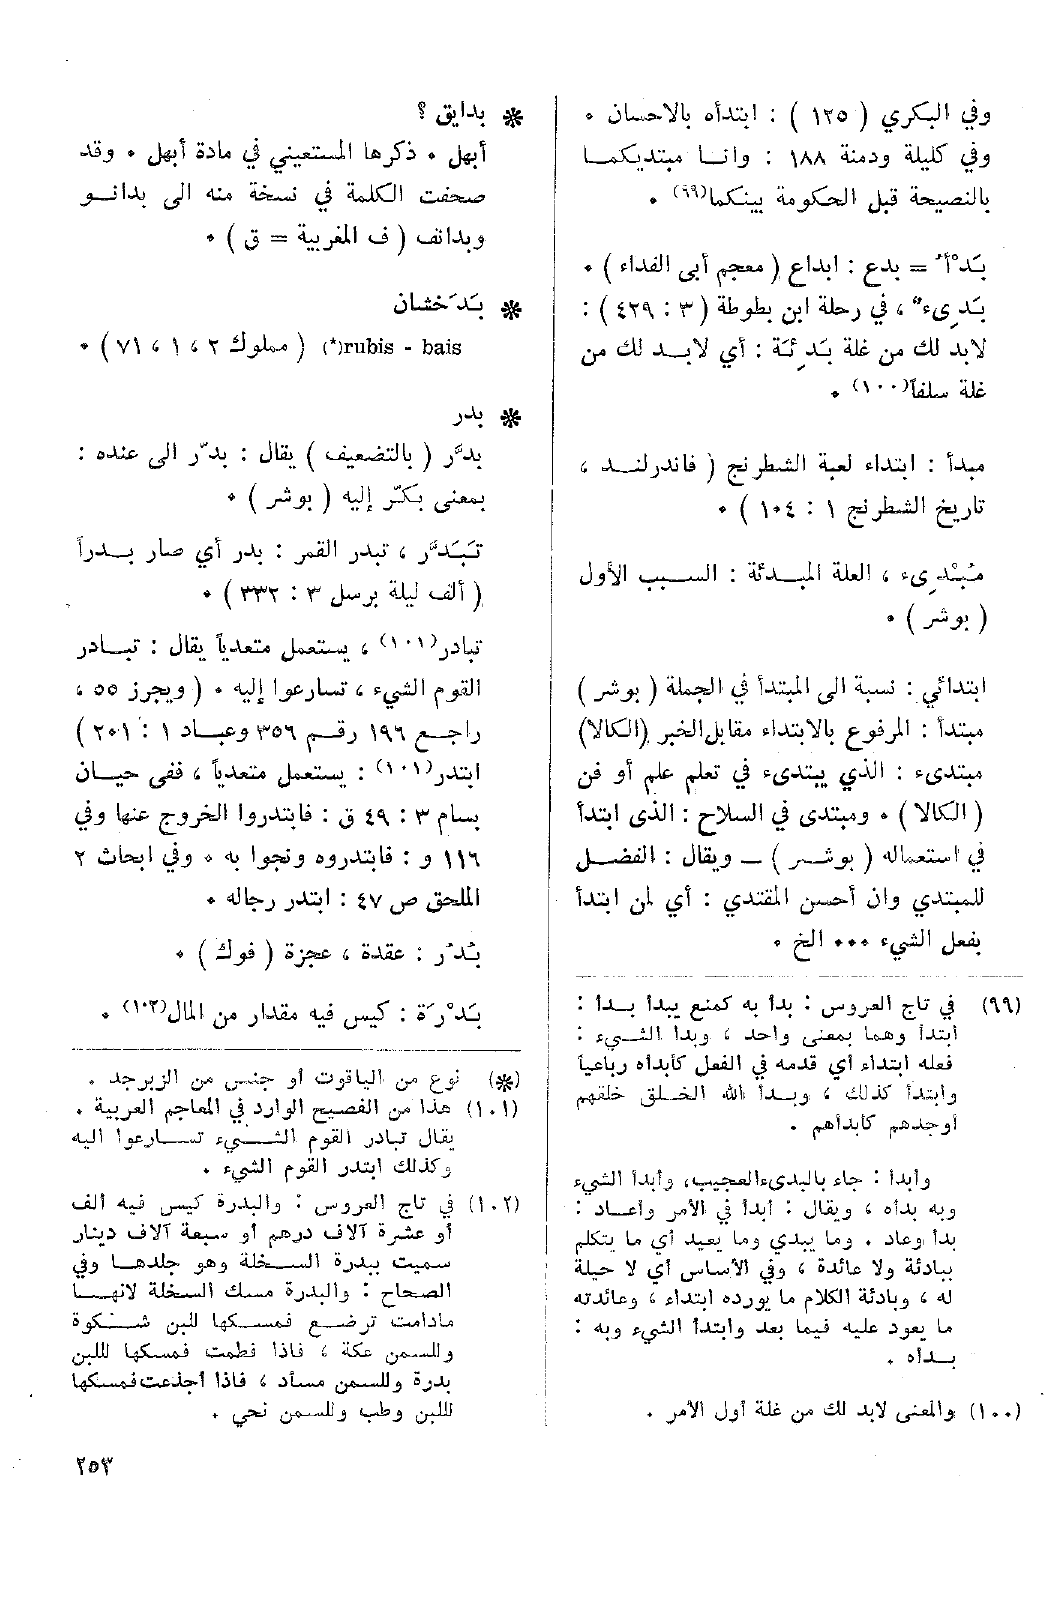 وفي البكري ( ١٢٥ ) : ابتدأه بالاحسان ٠
وفي كليلة ودمنة ١٨٨ : وانــا مبتديكمــا
بالنصيحة قبل الحكومة بينكما(٩٩) ٠
بَدْأ = بدع : ابداع ( معجم أبي الفداء ) ٠
بَدِيء ، في رحلة ابن بطوطة ( ٣ : ٤٢٩ ) :
لابد لك من غلة بَدِئَة : أي لابــد لك من
غلة سلفاً(١٠٠) ٠
مبدأ : ابتداء لعبة الشطرنج ( فاندرلنــد ،
تاريخ الشطرنج ١ : ١٠٤ ) ٠
مُبْدِيء ، العلة المبــدئة : السبــب الأول
( بوشر ) ٠
ابتدائي : نسبة الى المبتدأ في الجملة ( بوشر )
مبتدأ : المرفوع بالابتداء مقابل الخبر (الكالا)
مبتدىء : الذي يبتدىء في تعلم علم أو فن
( الكالا ) ٠ ومبتدى في السلاح : الذى ابتدأ
في استعماله ( بوشــر ) ــ ويقال : الفضــل
للمبتدي وان أحسن المقتدي : أي لمن ابتدأ
بفعل الشيء ٠٠٠ الخ ٠
(٩٩) في تاج العروس : بدأ به كمنع يبدأ بــدأ :
ابتدأ وهما بمعنى واحد ، وبدأ الشــيء :
فعله ابتداء أي قدمه في الفعل كأبدأه رباعياً
وابتدأ كذلك ، وبــدأ الله الخــلق خلقهم
أوجدهم كأبدأهم ٠
وأبدأ : جاء بالبديء العجيب، وأبدأ الشيء
وبه بدأه ، ويقال : أبدأ في الامر وأعــاد :
بدأ وعاد ٠ وما يبدي وما يعيد أي ما يتكلم
ببادئة ولا عائدة ، وفي الأساس أي لا حيلة
له ، وبادئة الكلام ما يورده ابتداء ، وعائدته
ما يعود عليه فيما بعد وابتدأ الشيء وبه :
بــدأه ٠
(١٠٠) والمعنى لابد لك من غلة أول الامر ٠
❋ بدايق ؟
أبهل ٠ ذكرها المستعيني في مادة أبهل ٠ وقد
صحفت الكلمة في نسخة منه الى بدانــو
وبدانف ( ف المغربية = ق ) ٠
❋ بَدَخشان
rubis - bais(*) ( مملوك ٢ ، ١ ، ٧١ ) ٠
❋ بدر
بدَّر ( بالتضعيف ) يقال : بدّر الى عنده :
بمعنى بَكّر إليه ( بوشر ) ٠
تَبَدَّر ، تبدر القمر : بدر أي صار بــدراً
( ألف ليلة برسل ٣ : ٣٣٢ ) ٠
تبادر(١٠١) ، يستعمل متعدياً يقال : تبــادر
القوم الشيء ، تسارعوا إليه ٠ ( ويجرز ٥٥ ،
راجــع ١٩٦ رقــم ٣٥٦ وعبــاد ١ : ٢٠١ )
ابتدر(١٠١) : يستعمل متعدياً ، ففي حيــان
بسام ٣ : ٤٩ ق : فابتدروا الخروج عنها وفي
١١٦ و : فابتدروه ونجوا به ٠ وفي ابحاث ٢
الملحق ص ٤٧ : ابتدر رجاله ٠
بُدْر : عقدة ، عجزة ( فوك ) ٠
بَدْرَة : كيس فيه مقدار من المال(١٠٢) ٠
(❋) نوع من الياقوت أو جنس من الزبرجد ٠
(١٠١) هذا من الفصيح الوارد في المعاجم العربية ٠
يقال تبادر القوم الشــيء تســارعوا اليه
وكذلك ابتدر القوم الشيء ٠
(١٠٢) في تاج العروس : والبدرة كيس فيه ألف
أو عشرة آلاف درهم أو سبعة آلاف دينار
سميت ببدرة الســخلة وهو جلدهــا وفي
الصحاح : والبدرة مسك السخلة لانهــا
مادامت ترضــع فمســكها للبن شــكوة
وللســمن عكة ، فاذا فطمت فمسكها للبن
بدرة وللســمن مسأد ، فاذا أجذعت فمسكها
للبن وطب وللسمن نحي ٠
٢٥٣